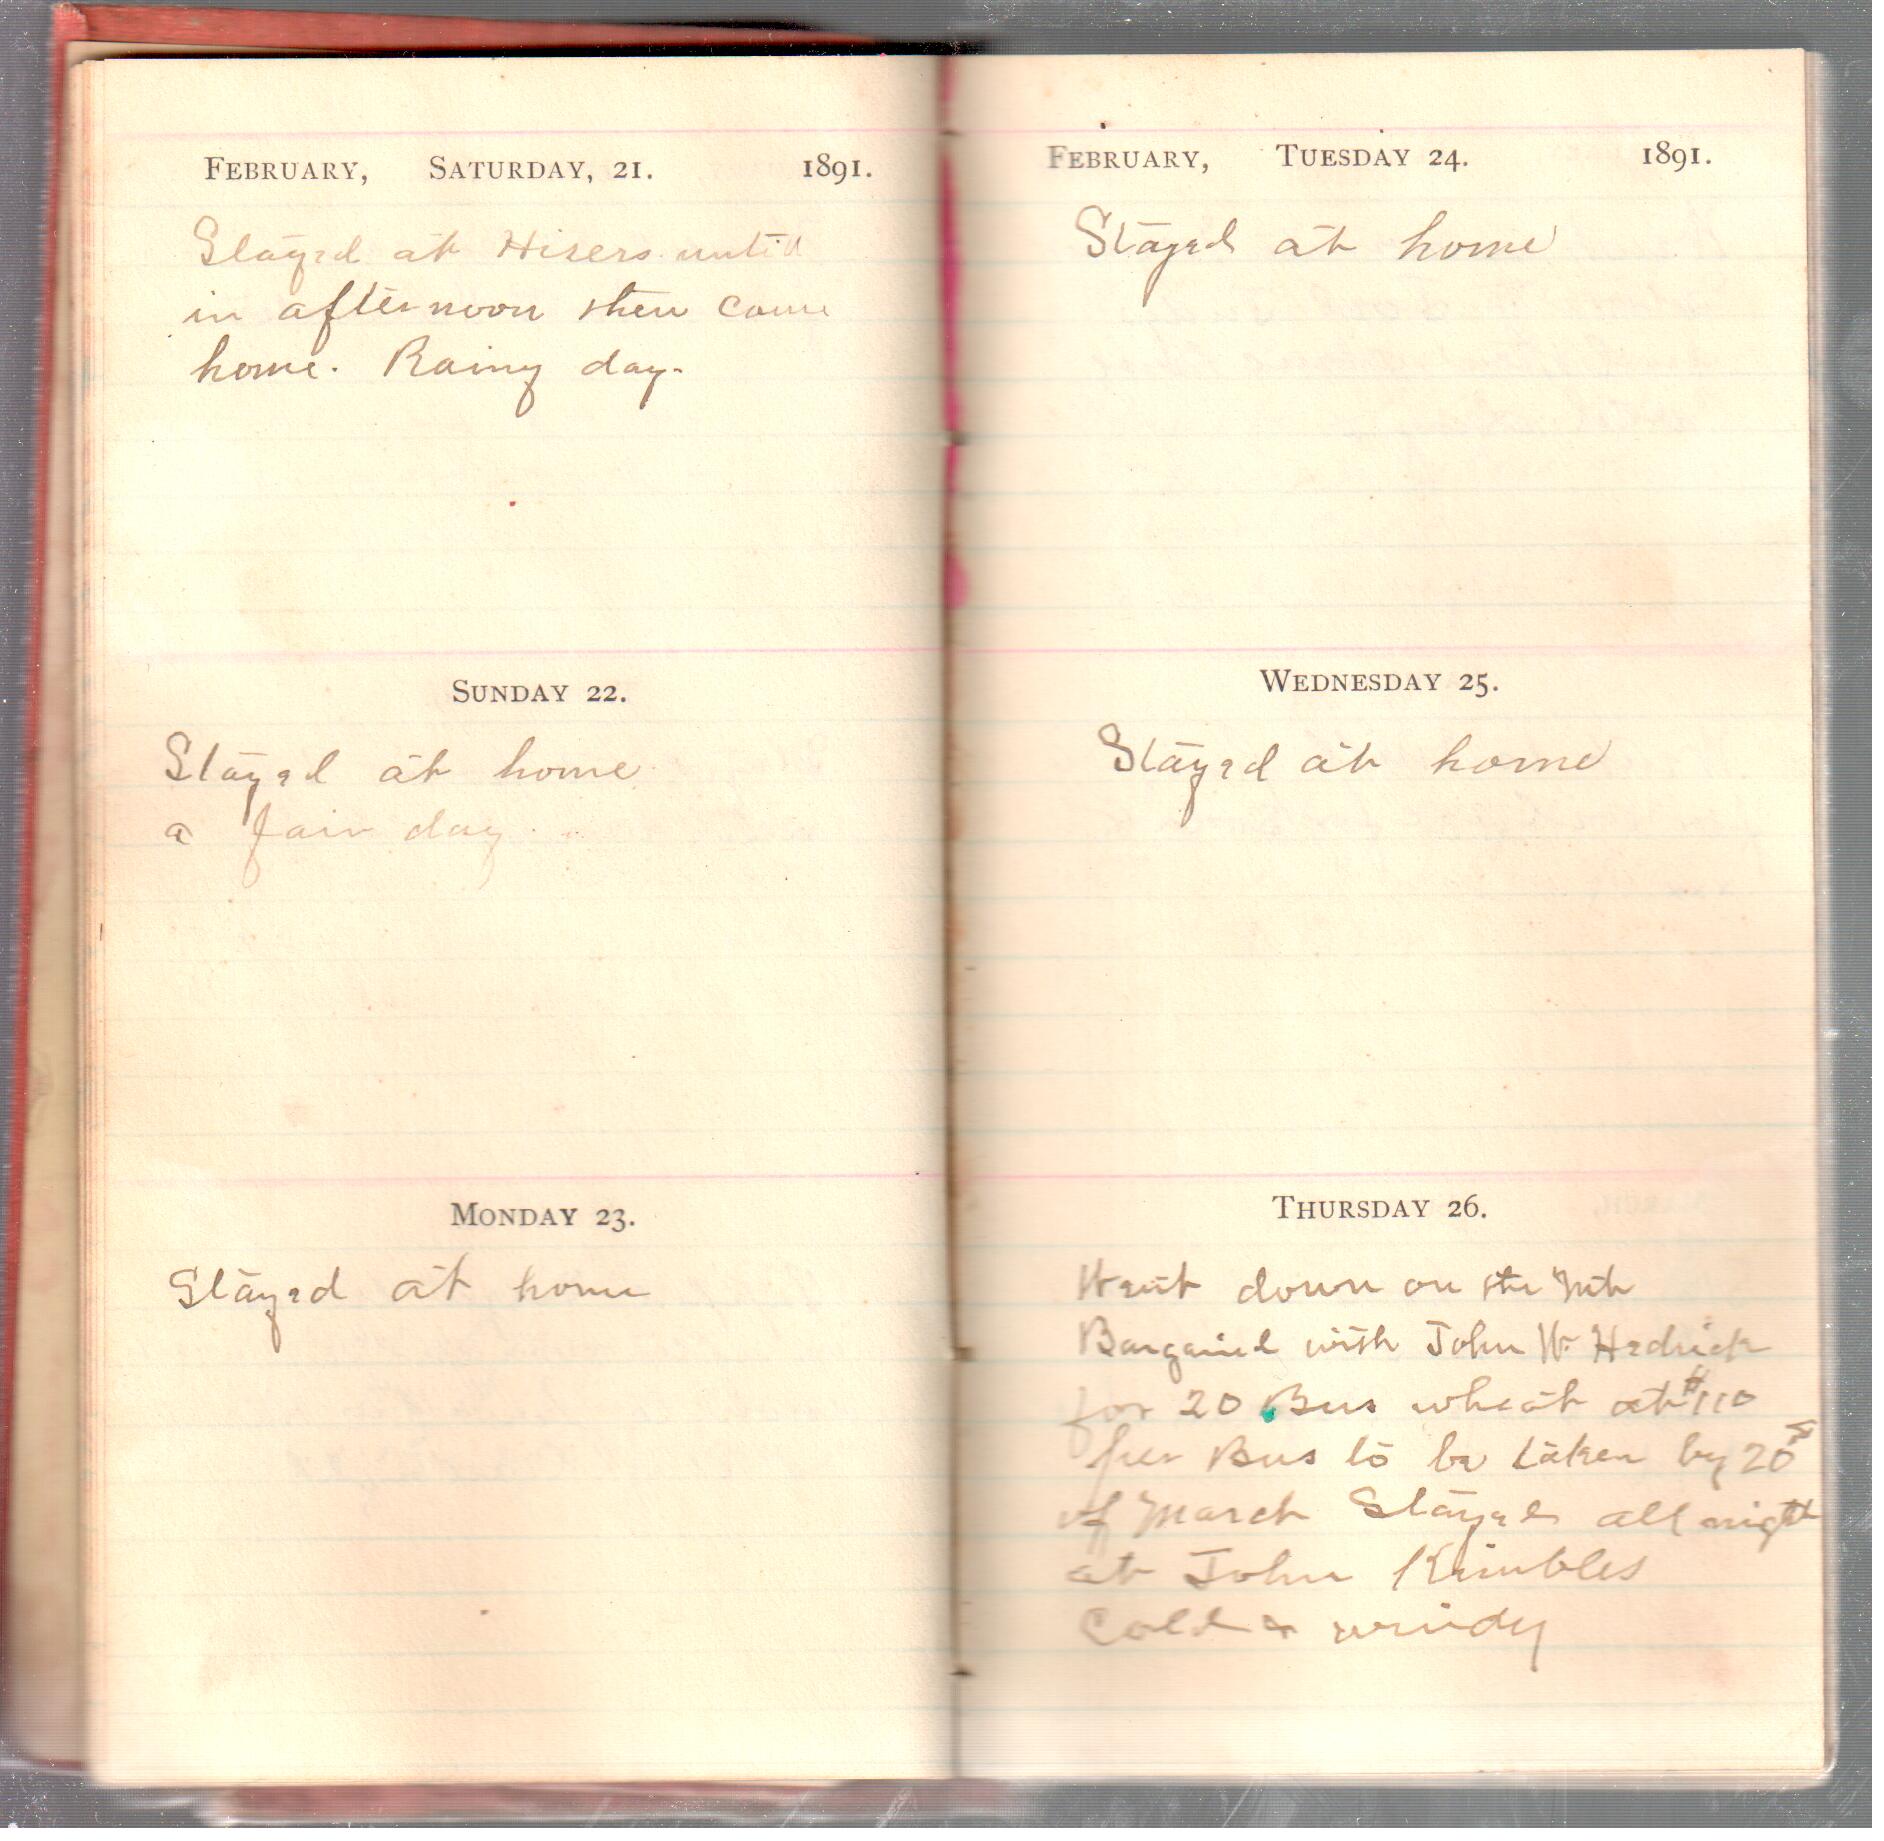 FEBRUARY, SATURDAY, 21. 1891.
Stayed at Hisers until
in afternoon then come
home. Rainy day.
SUNDAY 22.
Stayed at home
a fair day
MONDAY 23.
Stayed at home
FEBRUARY, TUESDAY 24. 1891.
Stayed at home
WEDNESDAY 25.
Stayed at home
THURSDAY 26.
Went down on the
Bargained with John W. Hedrick
for 20 Bus wheat at $110
per Bus to be taken by 20
of March Stayed all night
at John Kimbles
Cold & windy